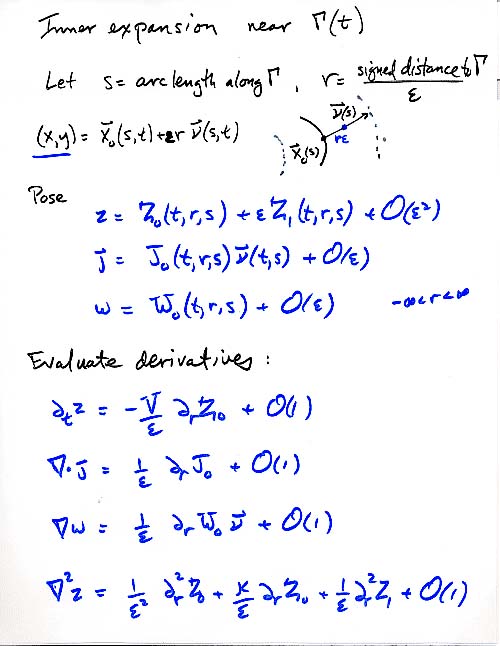 Inner expansion near Γ(t)
Let s = arc length along Γ, r = signed distance to Γ / ε
(x,y) = X⃗₀(s,t) + εr ν⃗(s,t)
ν⃗(s)
rε
X⃗₀(s)
Pose
z = Z₀(t,r,s) + εZ₁(t,r,s) + O(ε²)
j⃗ = J₀(t,r,s)ν⃗(t,s) + O(ε)
w = W₀(t,r,s) + O(ε) -∞<r<∞
Evaluate derivatives:
∂ₜz = -V/ε ∂ᵣZ₀ + O(1)
∇·j⃗ = 1/ε ∂ᵣJ₀ + O(1)
∇w = 1/ε ∂ᵣW₀ ν⃗ + O(1)
∇²z = 1/ε² ∂ᵣ²Z₀ + κ/ε ∂ᵣZ₀ + 1/ε ∂ᵣ²Z₁ + O(1)